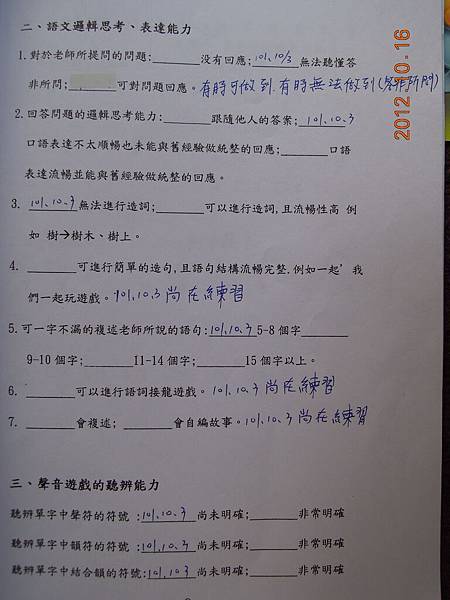 二、語文邏輯思考、表達能力
1.對於老師所提問的問題:________没有回應;101.10/3無法聽懂答
非所問;________可對問題回應。有時可做到.有時無法做到(答非所問)
2.回答問題的邏輯思考能力:________跟隨他人的答案;101.10.3
口語表達不太順暢也未能與舊經驗做統整的回應;________口語
表達流暢並能與舊經驗做統整的回應。
3. 101.10.3無法進行造詞;________可以進行造詞,且流暢性高 例
如 樹→樹木、樹上。
4. ________可進行簡單的造句,且語句結構流暢完整.例如一起’ 我
們一起玩遊戲。101.10.3尚在練習
5.可一字不漏的複述老師所說的語句:101.10.3 5-8個字________
9-10個字;________11-14個字;________15個字以上。
6. ________可以進行語詞接龍遊戲。101.10.3尚在練習
7. ________會複述; ________會自編故事。101.10.3尚在練習
三、聲音遊戲的聽辨能力
聽辨單字中聲符的符號 :101.10.3 尚未明確;________非常明確
聽辨單字中韻符的符號 :101.10.3 尚未明確;________非常明確
聽辨單字中結合韻的符號:101.10.3 尚未明確;________非常明確
2012.10.16